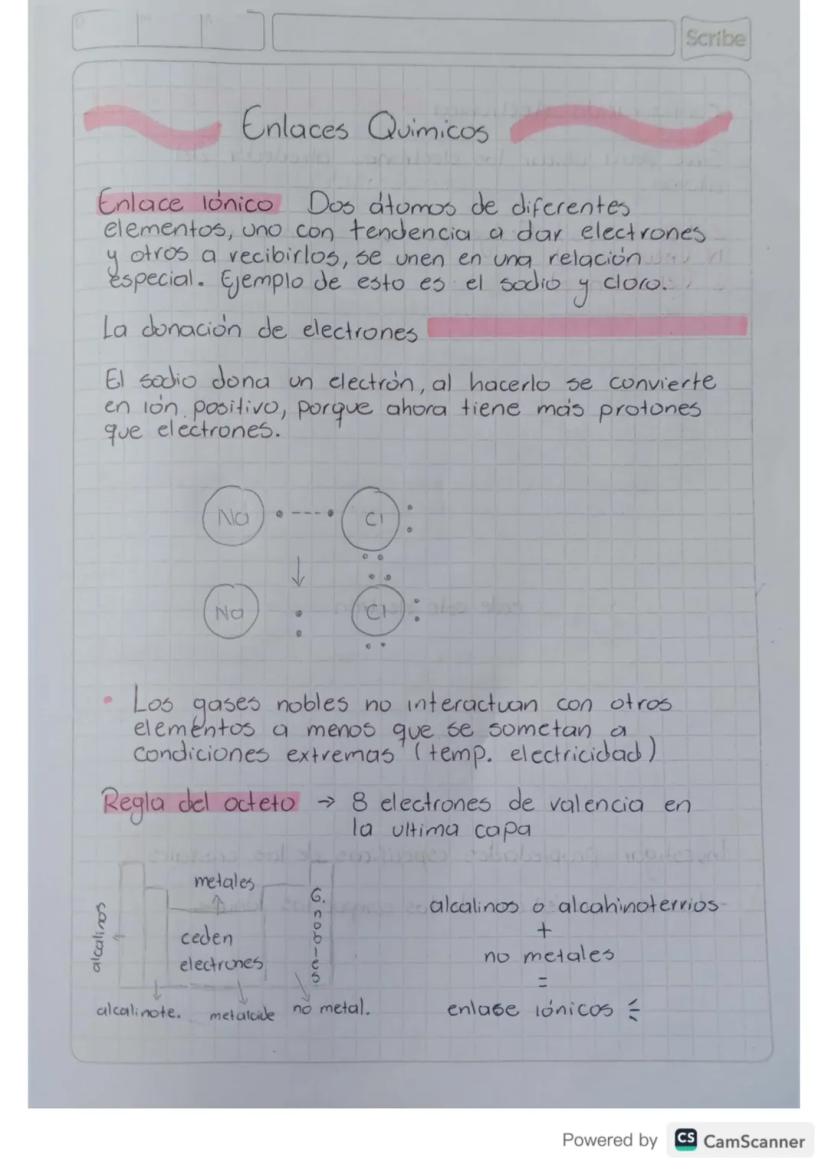 Scribe
Enlaces Quimicos
Enlace iónico Dos átomos de diferentes
elementos, uno con tendencia a dar electrones
y otros a recibirlos, se unen en una relación
especial. Ejemplo de esto es el sodio y cloro.
La donación de electrones
El sodio dona un electrón, al hacerlo se convierte
en ión positivo, porque ahora tiene más protones
que electrones.
Na Cl
Na Cl
• Los gases nobles no interactuan con otros
elementos a menos que se sometan a
condiciones extremas (temp. electricidad)
Regla del octeto → 8 electrones de valencia en
la ultima capa
metales
alcalinos
G. nobles
ceden
electrones
alcalinote. metaloide no metal.
alcalinos o alcahinoterrios
+
no metales
=
enlase iónicos
Powered by CS CamScanner